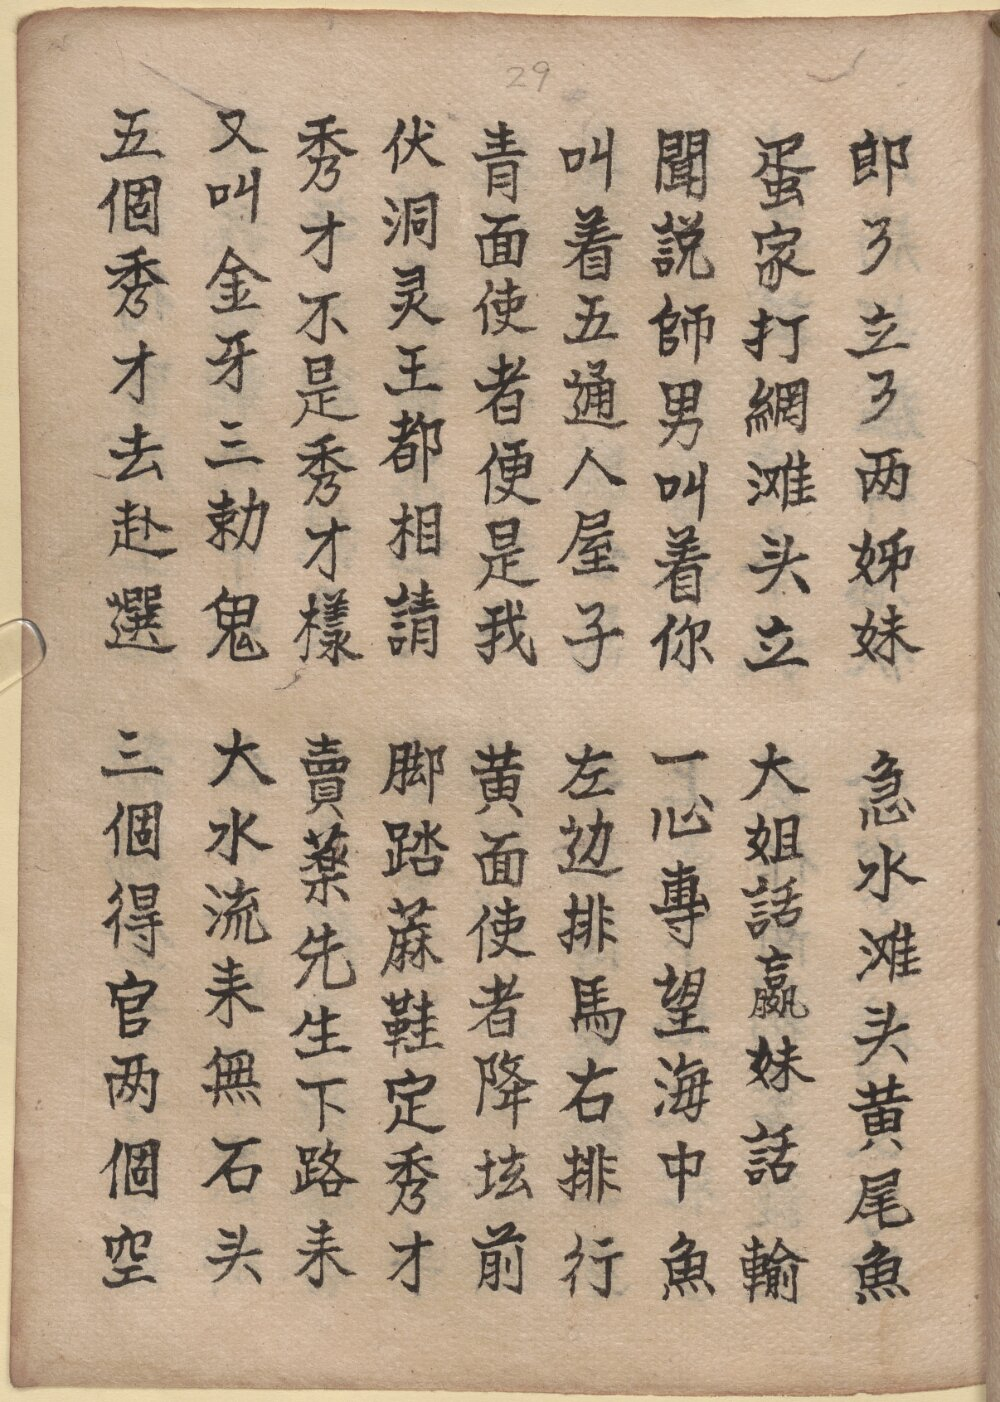 29
郎了立了两姊妹 急水滩头黄尾魚
蛋家打網滩头立 大姐話嬴妹話輸
聞説師男叫着你 一心專望海中魚
叫着五通人屋子 左边排馬右排行
青面使者便是我 黄面使者降坛前
伏洞灵王都相請 脚踏蔴鞋定秀才
秀才不是秀才樣 賣藥先生下路来
又叫金牙三勅鬼 大水流来無石头
五個秀才去赴選 三個得官两個空